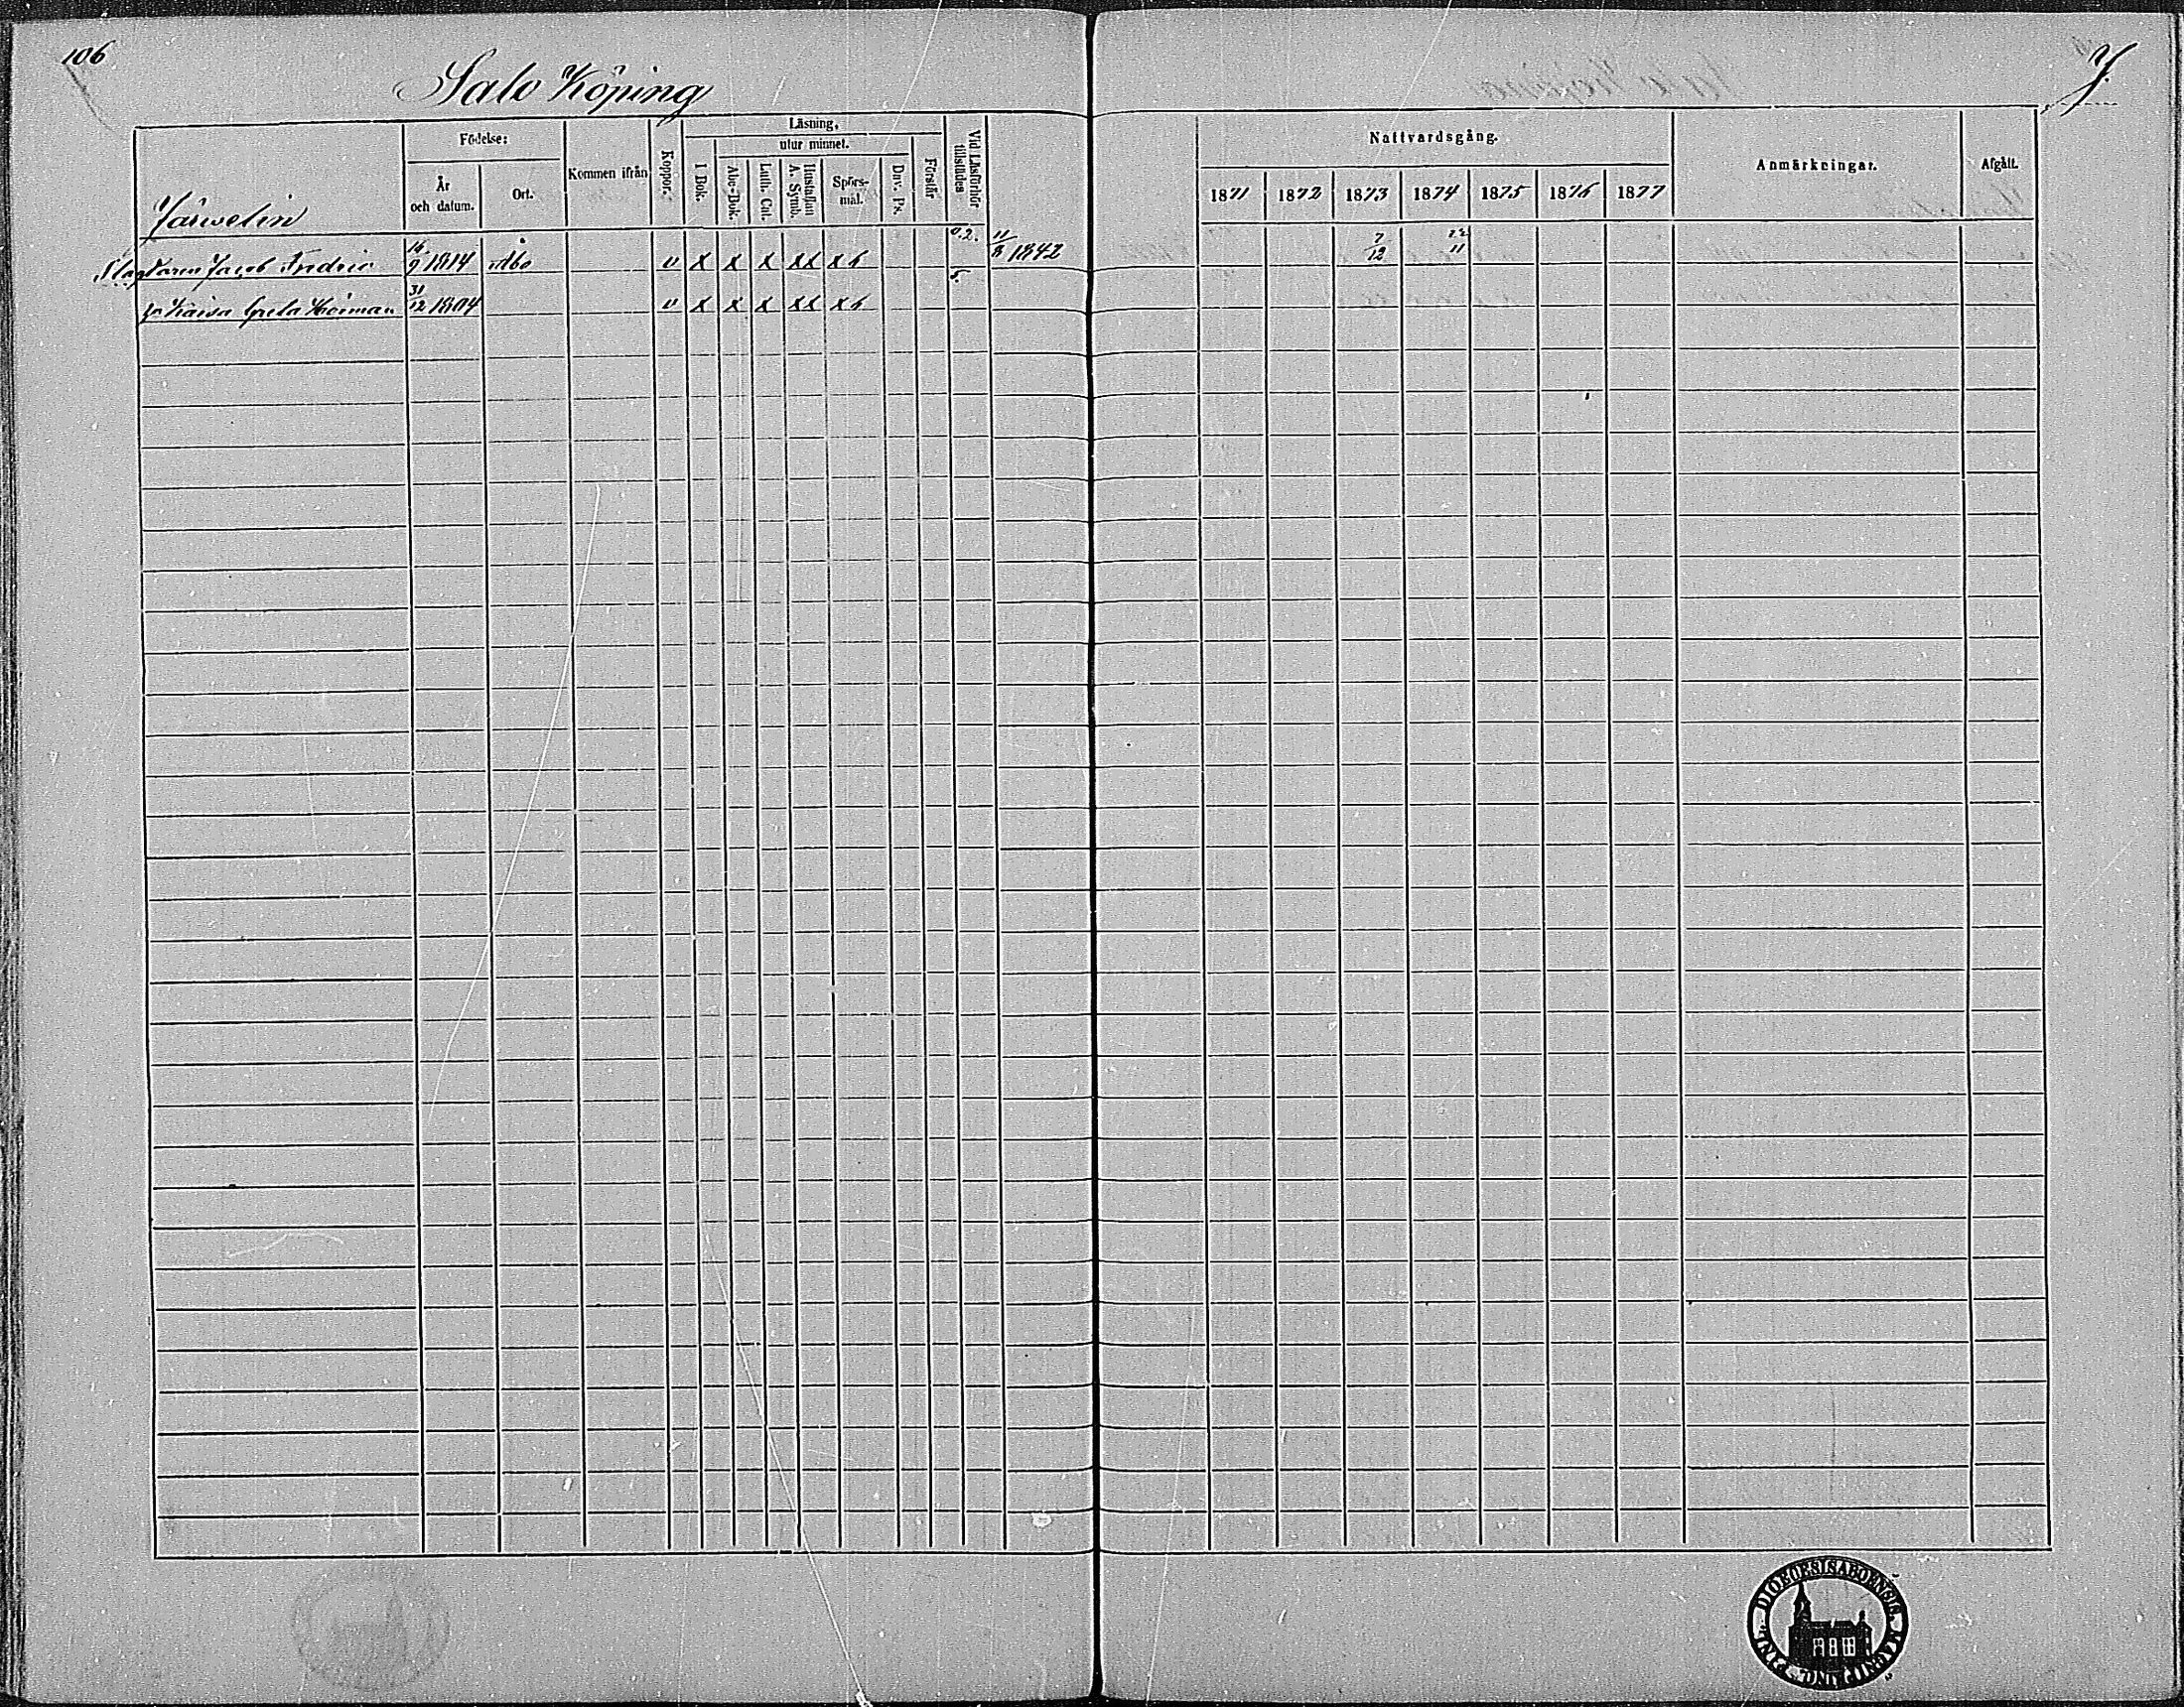 106
Salo Köping
J.
Födelse:
År och datum.
Ort.
Kommen ifrån
Koppor.
Läsning,
utur minnet.
I Bok.
Abc-Bok.
Luth. Cat.
Hustaflan A. Symb.
Spörs-mål.
Dav. Ps.
Förstår
Vid Läsförhör tillstädes
Nattvardsgång.
1871 1872 1873 1874 1875 1876 1877
Anmärkningar.
Afgått.
Järwelin
Slagtaren Jacob Fredric 16/9 1814 Åbo v x x x xx x b 0.2. 11/8 1842 7/12 22/11
hu Kaisa Greta 31/12 1804 v x x x xx x b
DIOECESIS ABOENSIS
MAGNI PRINC.
FINL.